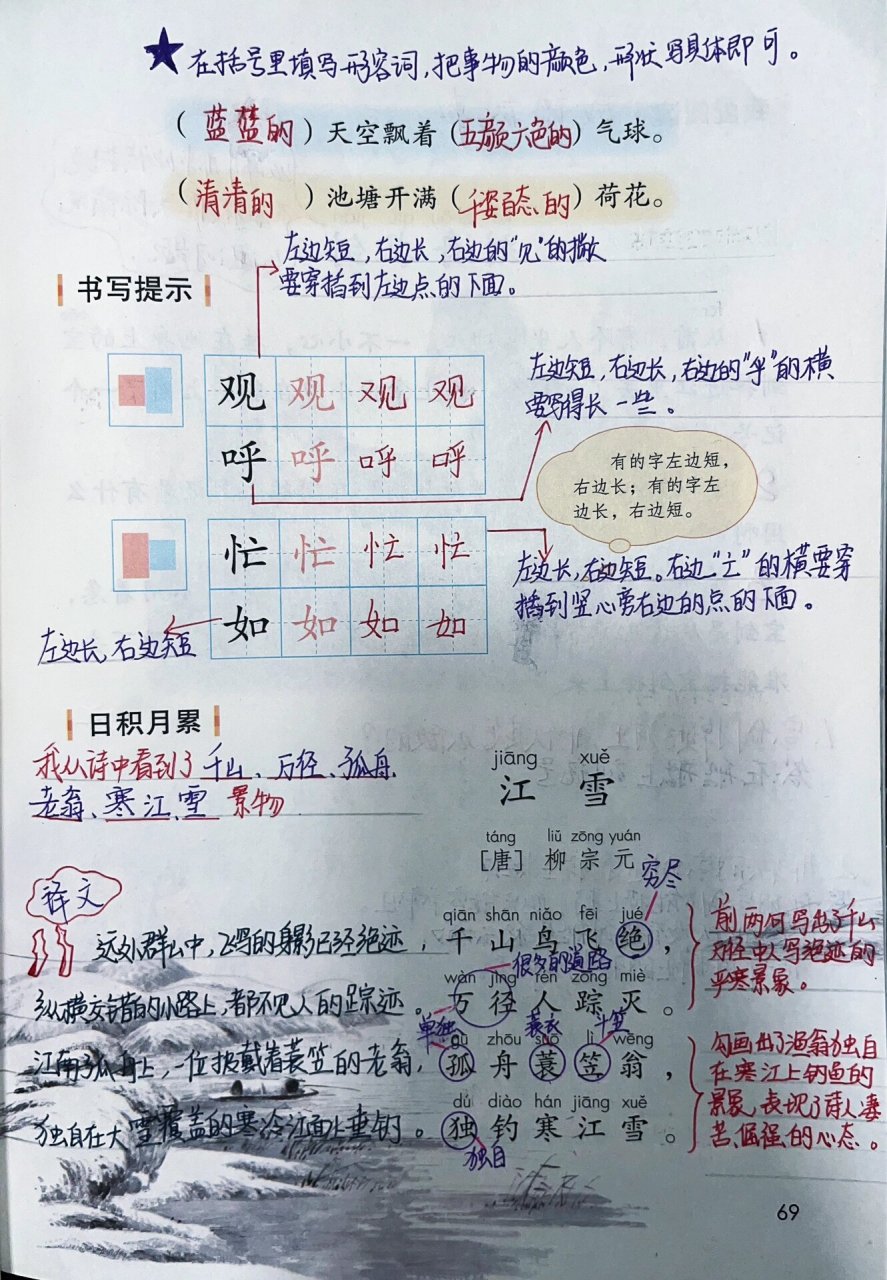 在括号里填写形容词，把事物的颜色，形状写具体即可。
（蓝蓝的）天空飘着（五颜六色的）气球。
（清清的）池塘开满（千姿百态的）荷花。
左边短，右边长，右边的“见”的撇
要穿插到左边点的下面。
书写提示
左边短，右边长，右边的“乎”的横
要写得长一些。
观 观 观 观
呼 呼 呼 呼
有的字左边短，
右边长；有的字左
边长，右边短。
忙 忙 忙 忙
左边长，右边短。右边“亡”的横要穿
插到竖心旁右边的点的下面。
如 如 如 如
左边长，右边短
日积月累
我从诗中看到了千山、万径、孤舟、
老翁、寒江、雪 景物
jiāng xuě
江 雪
táng liǔ zōng yuán
［唐］柳宗元
穷尽
译文
远处群山中，飞鸟的身影已经绝迹，
纵横交错的小路上，都不见人的踪迹。
江南孤舟上，一位披戴着蓑笠的老翁，
独自在大雪覆盖的寒冷江面上垂钓。
qiān shān niǎo fēi jué
千山鸟飞绝，
很多的道路
wàn jìng rén zōng miè
万径人踪灭。
单独 蓑衣 斗笠
gū zhōu suō lì wēng
孤舟蓑笠翁，
dú diào hán jiāng xuě
独钓寒江雪。
独自
前两句写出了千山
万径中人鸟绝迹的
严寒景象。
勾画出了渔翁独自
在寒江上钓鱼的
景象，表现了诗人凄
苦、倔强的心态。
69